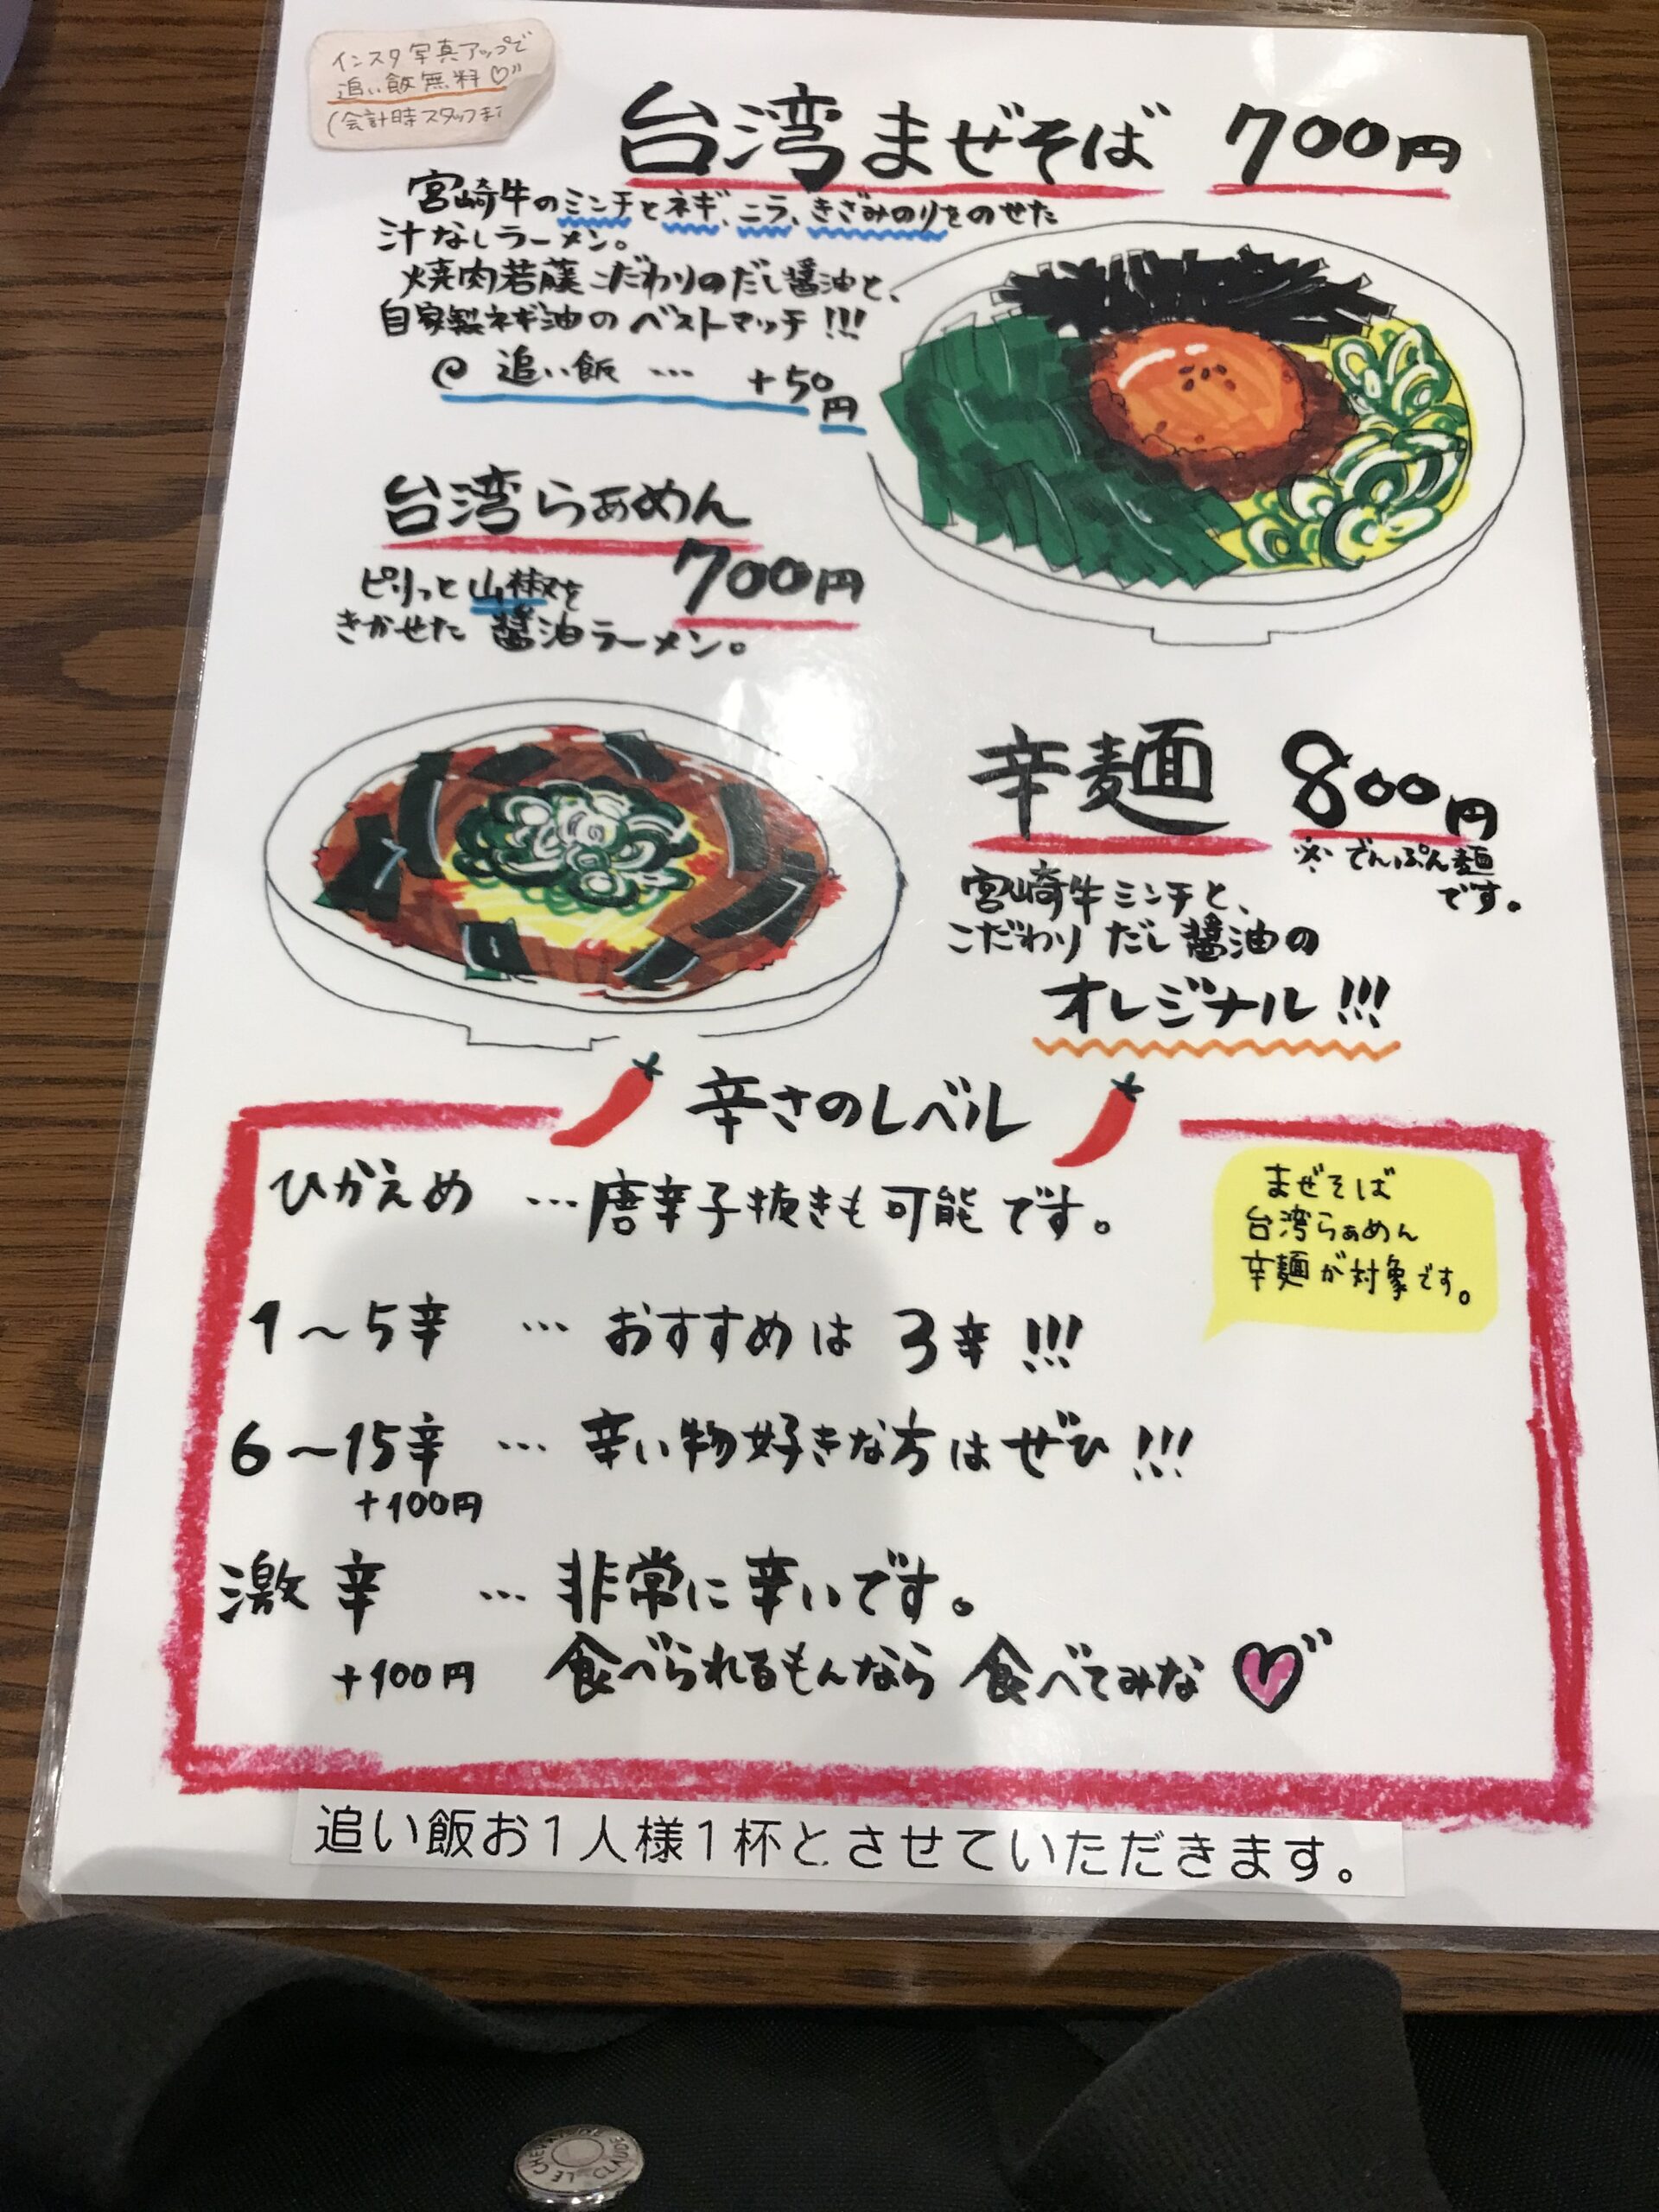 インスタ写真アップで
追い飯無料♡
(会計時スタッフまで
台湾まぜそば 700円
宮崎牛のミンチとネギ、ニラ、きざみのりをのせた
汁なしラーメン。
焼肉若藤こだわりのだし醤油と、
自家製ネギ油のベストマッチ!!!
追い飯 … +50円
台湾らぁめん
700円
ピリっと山椒を
きかせた 醤油ラーメン。
辛麺 800円
※でんぷん麺
です。
宮崎牛ミンチと、
こだわりだし醤油の
オレジナル!!!
辛さのレベル
ひかえめ …唐辛子抜きも可能です。
まぜそば
台湾らぁめん
辛麺が対象です。
1〜5辛 … おすすめは 3辛!!!
6〜15辛 … 辛い物好きな方はぜひ!!!
+100円
激辛 … 非常に辛いです。
+100円 食べられるもんなら 食べてみな♡
追い飯お1人様1杯とさせていただきます。